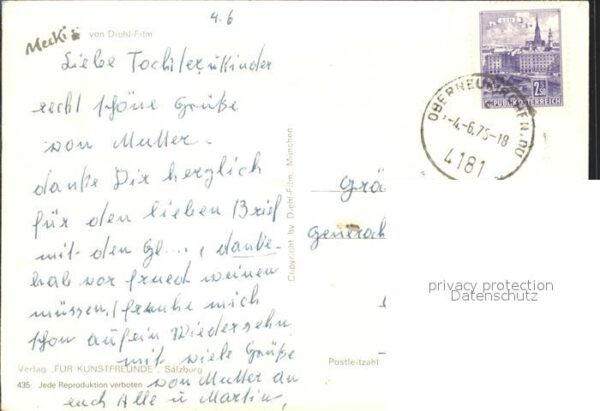 4.6
Mecki von Diehl-Film
Liebe Tochter u Kinder
recht schöne Grüße
von Mutter.
danke Dir herzlich
für den lieben Brief
mit den Gl..., danke
hab vor freud weinen
müssen, freue mich
schon auf ein Wiedersehn
mit viele Grüße
von Mutter an
euch Alle u Martin,
Verlag „FÜR KUNSTFREUNDE“, Salzburg
435 Jede Reproduktion verboten
Copyright by Diehl-Film, München
LINZ
2.50
REPUBLIK ÖSTERREICH
-4.-6.75-18
4181
Postleitzahl
privacy protection
Datenschutz